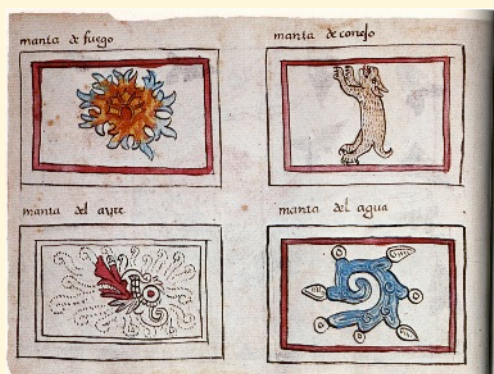 manta de fuego
manta de conejo
manta del ayre
manta del agua